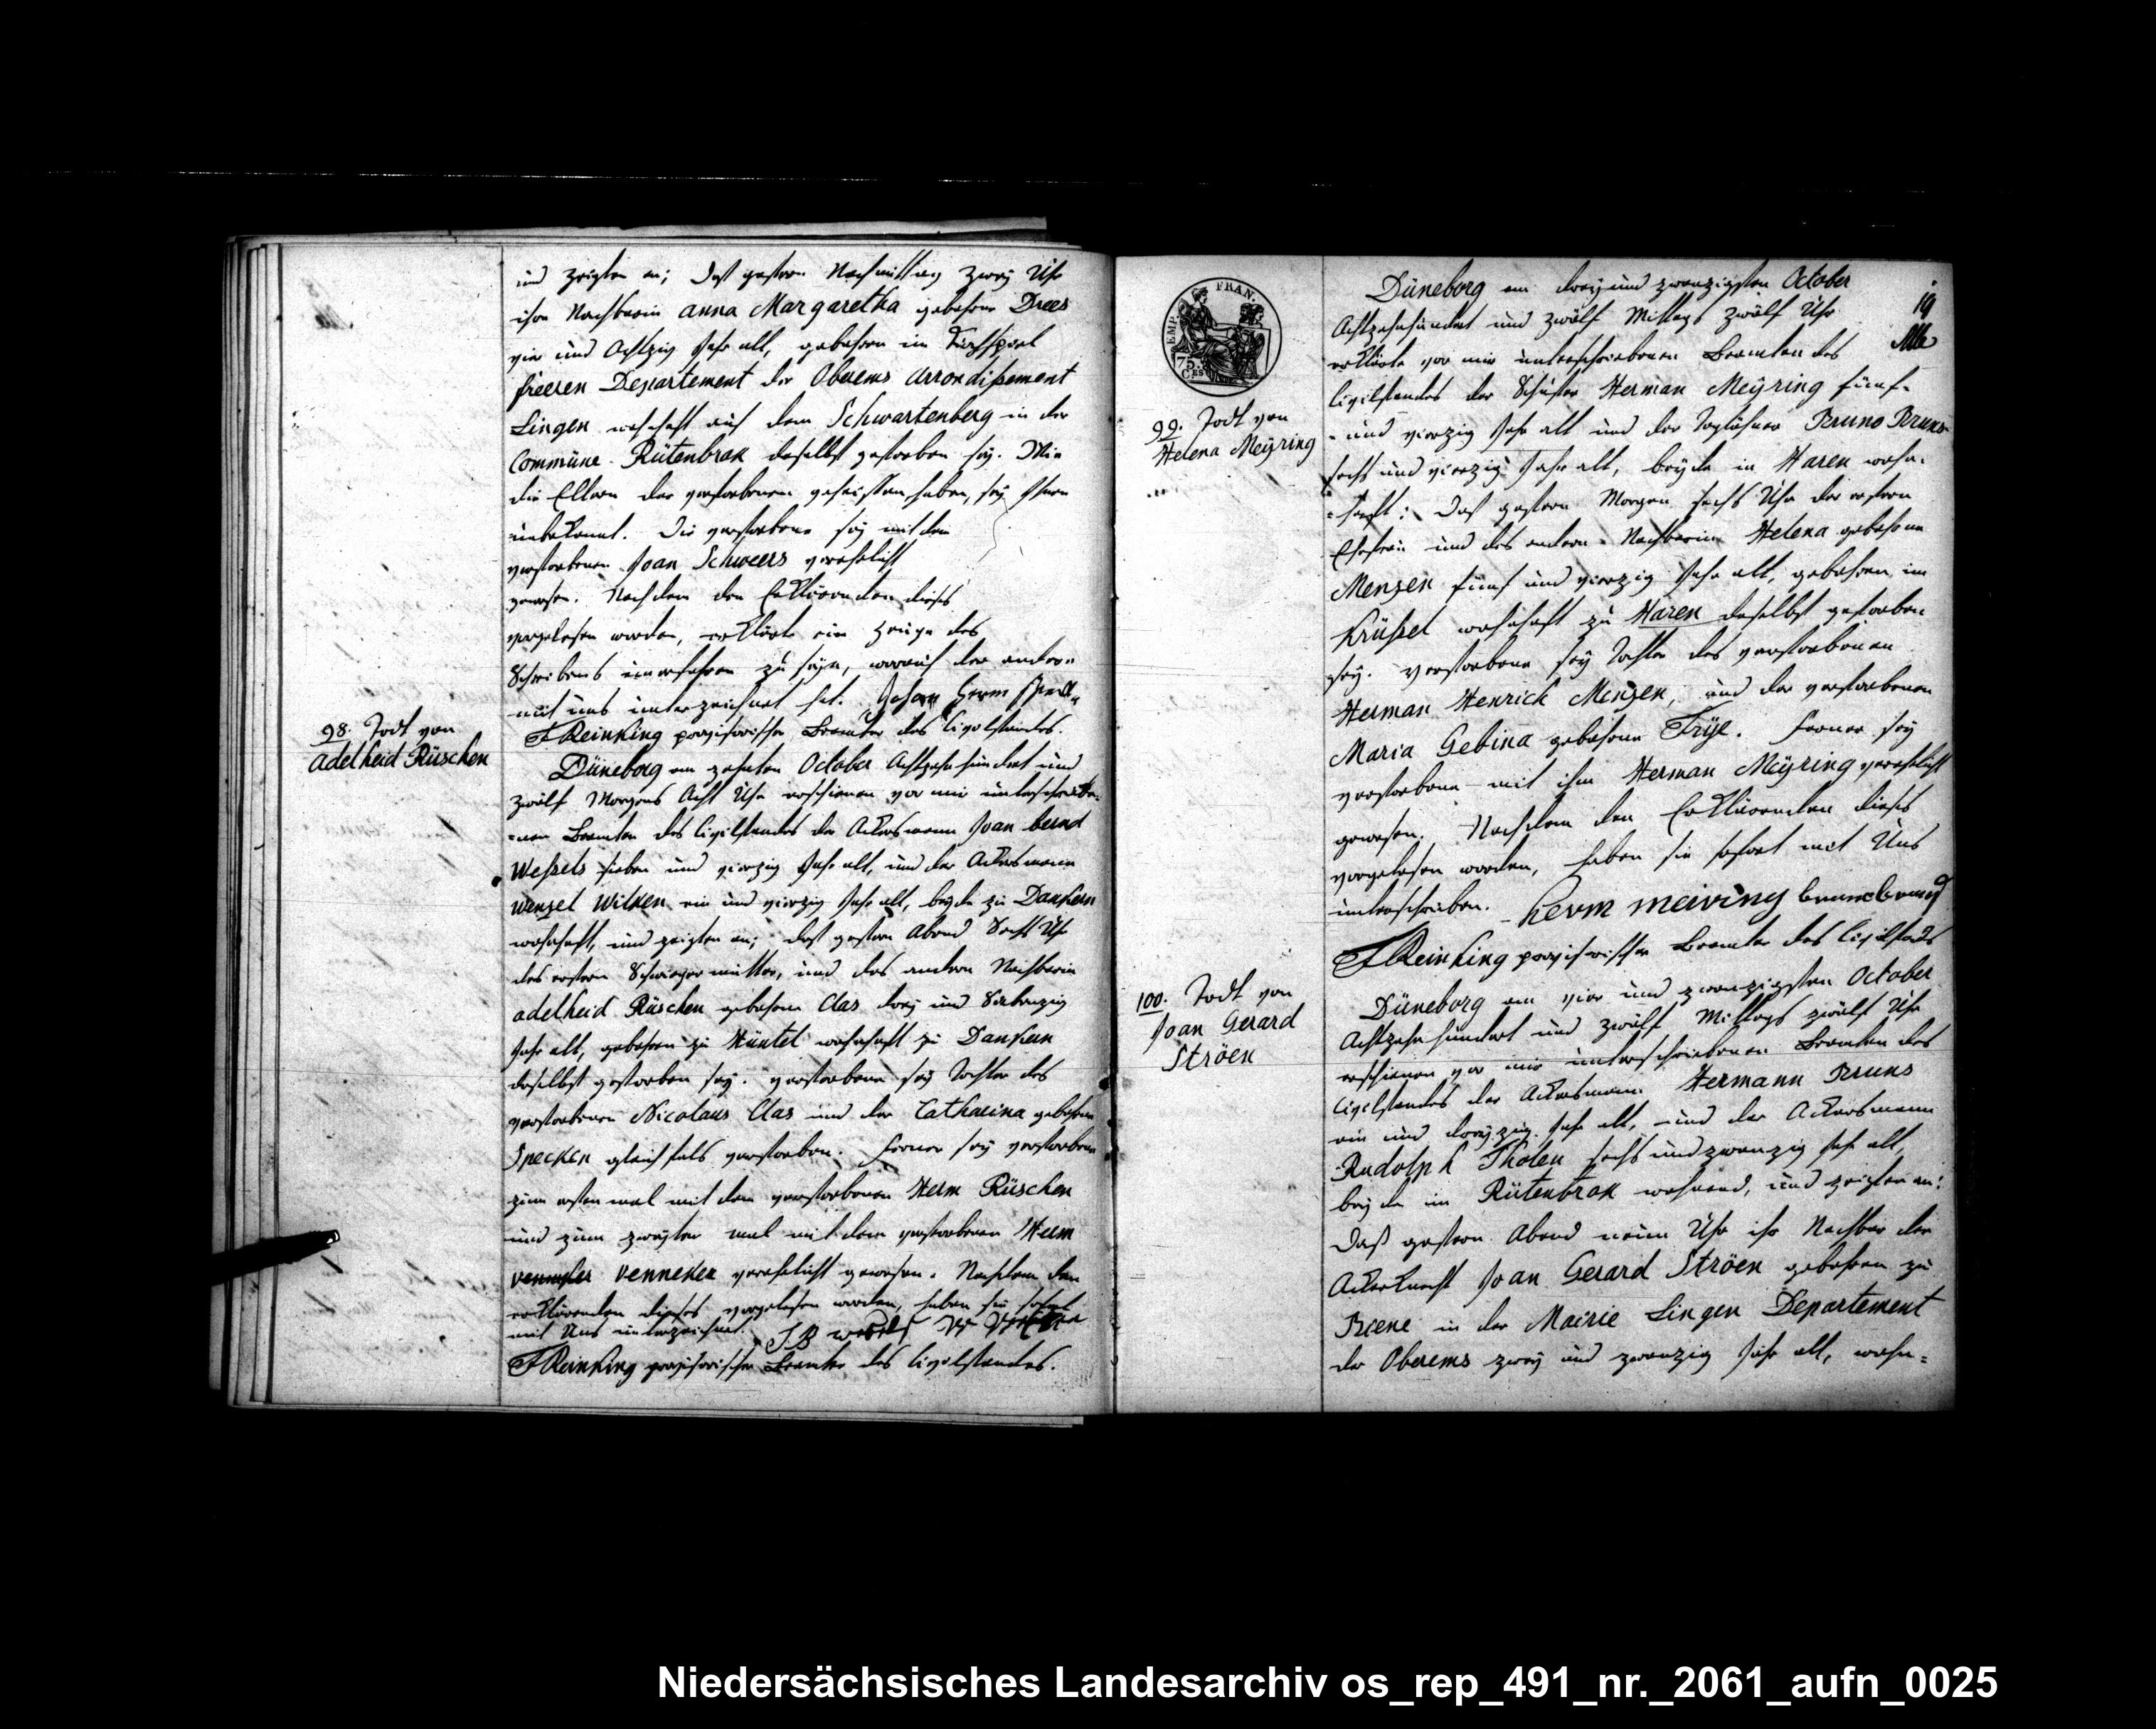 und zeigten an; daß gestern Nachmittag zwey Uhr
ihre Nachbarin Anna Margaretha gebohrne Drees
vier und Achtzig Jahr alt, gebohren im Kirchspiel
freeren Departement der Oberems Arrondißement
Lingen wohnhaft auf dem Schwartenberg in der
Commüne Rütenbrok daselbst gestorben sey. Wie
die Eltern der verstorbenen geheissen haben, sey Ihnen
unbekannt. Die verstorbene sey mit dem
verstorbenen Joan Schweers verehelicht
gewesen. Nachdem den Erklärenden dieses
vorgelesen worden, erklärte ein Zeuge des
Schreibens unerfahren zu seyn, worauf der andere
mit uns unterzeichnet hat. Johan Herm
F Reinking provisorischer Beamter des Civilstandes.
98. Todt von
Adelheid Rüschen
Düneborg am zehnten October Achtzehnhundert und
zwölf Morgens Acht Uhr erschienen vor mir unterschriebe-
-nen Beamten des Civilstandes der Ackersmann Joan bernd
Weßels sieben und vierzig Jahr alt, und der Ackersmann
Wenzel Wilken ein und vierzig Jahr alt, beyde zu Dankern
wohnhaft, und zeigten an; daß gestern Abend Sechs Uhr
des erstern Schwiegermutter, und des andern Nachbarin
Adelheid Rüschen gebohrne Clas drey und Siebenzig
Jahr alt, gebohren zu Hüntel wohnhaft zu Dankern
daselbst gestorben sey. verstorbene sey Tochter des
verstorbenen Nicolaus Clas und der Catharina gebohrne
Specken gleichfals verstorben. ferner sey verstorbene
zum ersten mal mit dem verstorbenen Herm Rüschen
und zum zweyten mal mit dem verstorbenen Herm
Venneker verehelicht gewesen. Nachdem den
erklärenden dieses vorgelesen worden, haben sie sofort
mit Uns unterzeichnet. J B W
F Reinking provisorischer Beamter des Civilstandes.
EMP. FRAN.
75.
CES
19
99. Todt von
Helena Meyring
Düneborg am drey und zwanzigsten October
Achtzehnhundert und zwölf Mittags zwölf Uhr
erklärte vor mir unterschriebenen Beamten des
Civilstandes der Schuster Herman Meyring fünf-
-und vierzig Jahr alt und der Taglöhner Bruno Bruns
sechs und vierzig Jahr alt, beyde in Haren wohn-
-haft: Daß gestern Morgen sechs Uhr des erstern
Ehefrau und des andern Nachbarin Helena gebohrne
Menzen fünf und vierzig Jahr alt, gebohren im
Krüßel wohnhaft zu Haren daselbst gestorben
sey. verstorbene sey Tochter des verstorbenen
Herman Henrick Menzen, und der verstorbenen
Maria Gebina gebohrne Frye. ferner sey
verstorbene mit ihm Herman Meyring verehelicht
gewesen. Nachdem den Erklärenden dieses
vorgelesen worden, haben sie sofort mit Uns
unterschrieben. herm meiring
F Reinking provisorischer Beamter des Civilstands
100. Todt von
Joan Gerard
Ströen
Düneborg am vier und zwanzigsten October
Achtzehnhundert und zwölf Mittags zwölf Uhr
erschienen vor mir unterschriebenen Beamten des
Civilstandes der Ackersmann Hermann Bruns
ein und dreyzig Jahr alt, und der Ackersmann
Rudolph Tholen sechs und zwanzig Jahr alt,
beyde im Rütenbrok wohnend, und zeigten an:
Daß gestern Abend neun Uhr ihr Nachbar der
Ackerknecht Joan Gerard Ströen gebohren zu
Beene in der Mairie Lingen Departement
der Oberems zwey und zwanzig Jahr alt, wohn=
Niedersächsisches Landesarchiv os_rep_491_nr._2061_aufn_0025